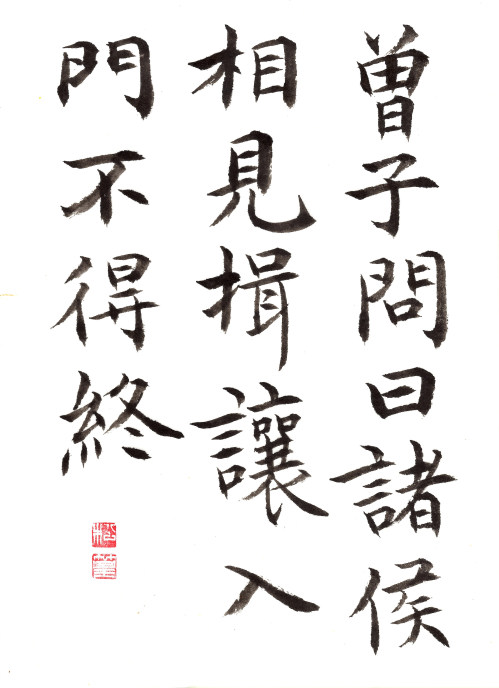 曽子問曰諸侯
相見揖讓入
門不得終